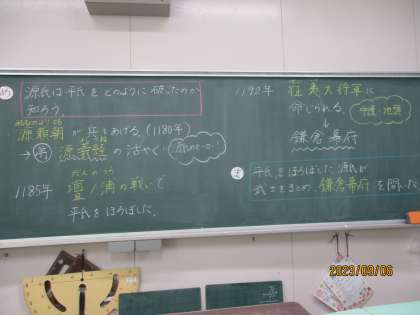 め
源氏は平氏をどのように破ったのか
知ろう。
みなもとのよりとも
源頼朝が兵をあげる。(1180年)
→弟 源義経の活やく
1185年 壇ノ浦の戦いで
だんのうら
平氏をほろぼした。
1192年 征夷大将軍に
命じられる。
守護・地頭
↓
鎌倉幕府
ま
平氏をほろぼした源氏が
武士をまとめ、鎌倉幕府を開いた
2023/09/06